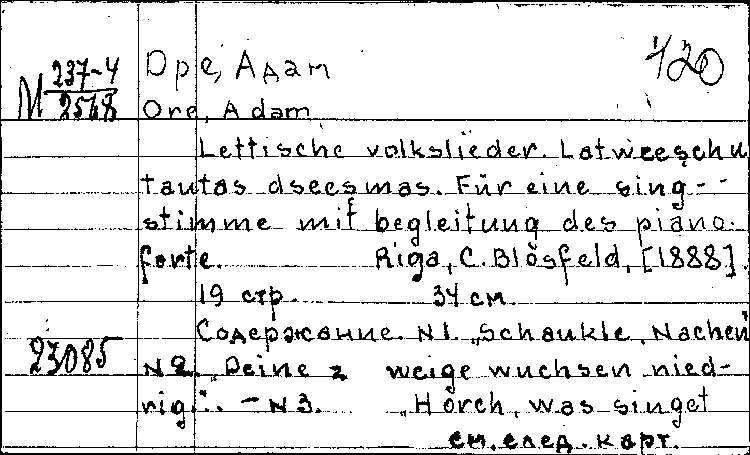 Оре, Адам 420
М 237-4
2568
Ore, Adam
Lettische volkslieder. Latweeschu
tautas dseesmas. Für eine sing-
stimme mit begleitung des piano-
forte. Riga, C. Blosfeld, [1888].
19 стр. 34 см.
Содержание. N1. „Schaukle, Nachen
23085
N2. „Deine z weige wuchsen nied-
rig". - N3. „Horch, was singet
см. след. карт.